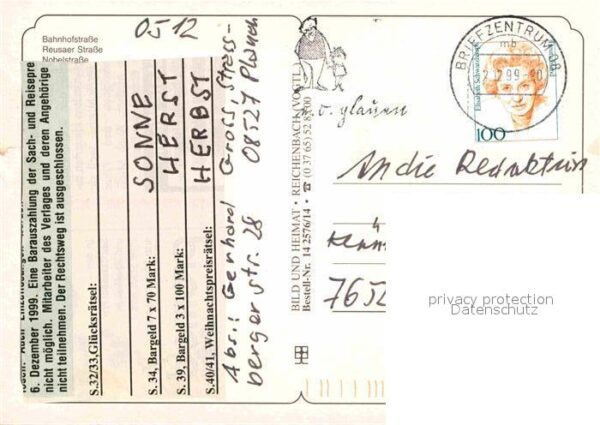 Bahnhofstraße
Reusaer Straße
Nobelstraße
0512
6. Dezember 1999. Eine Barauszahlung der Sach- und Reisepre
nicht möglich. Mitarbeiter des Verlages und deren Angehörige
nicht teilnehmen. Der Rechtsweg ist ausgeschlossen.
S.32/33,Glücksrätsel:
SONNE
S. 34, Bargeld 7 x 70 Mark:
HERST
S. 39, Bargeld 3 x 100 Mark:
HERBST
S.40/41, Weihnachtspreisrätsel:
Abs.: Gerhard Gross, Stress-
berger str. 28 08527 Plauen
BILD UND HEIMAT • REICHENBACH/VOGTL.
Bestell-Nr. 14 2576/14 •
BRIEFZENTRUM 08
mb
100
An die Redaktion
privacy protection
Datenschutz